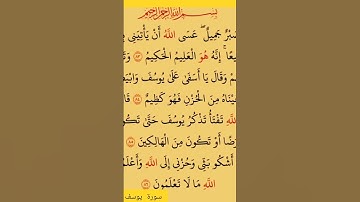 بِسْمِ اللَّهِ الرَّحْمَٰنِ الرَّحِيمِ
صَبْرٌ جَمِيلٌ ۖ عَسَى اللَّهُ أَنْ يَأْتِيَنِي
يعًا ۚ إِنَّهُ هُوَ الْعَلِيمُ الْحَكِيمُ ٨٣
مْ وَقَالَ يَا أَسَفَىٰ عَلَىٰ يُوسُفَ وَابْيَضَّ
يْنَاهُ مِنَ الْحُزْنِ فَهُوَ كَظِيمٌ ٨٤ قَا
اللَّهِ تَفْتَأُ تَذْكُرُ يُوسُفَ حَتَّىٰ تَكُو
رَضًا أَوْ تَكُونَ مِنَ الْهَالِكِينَ ٨٥
أَشْكُو بَثِّي وَحُزْنِي إِلَى اللَّهِ وَأَعْلَمُ
اللَّهِ مَا لَا تَعْلَمُونَ ٨٦
سورة يوسف